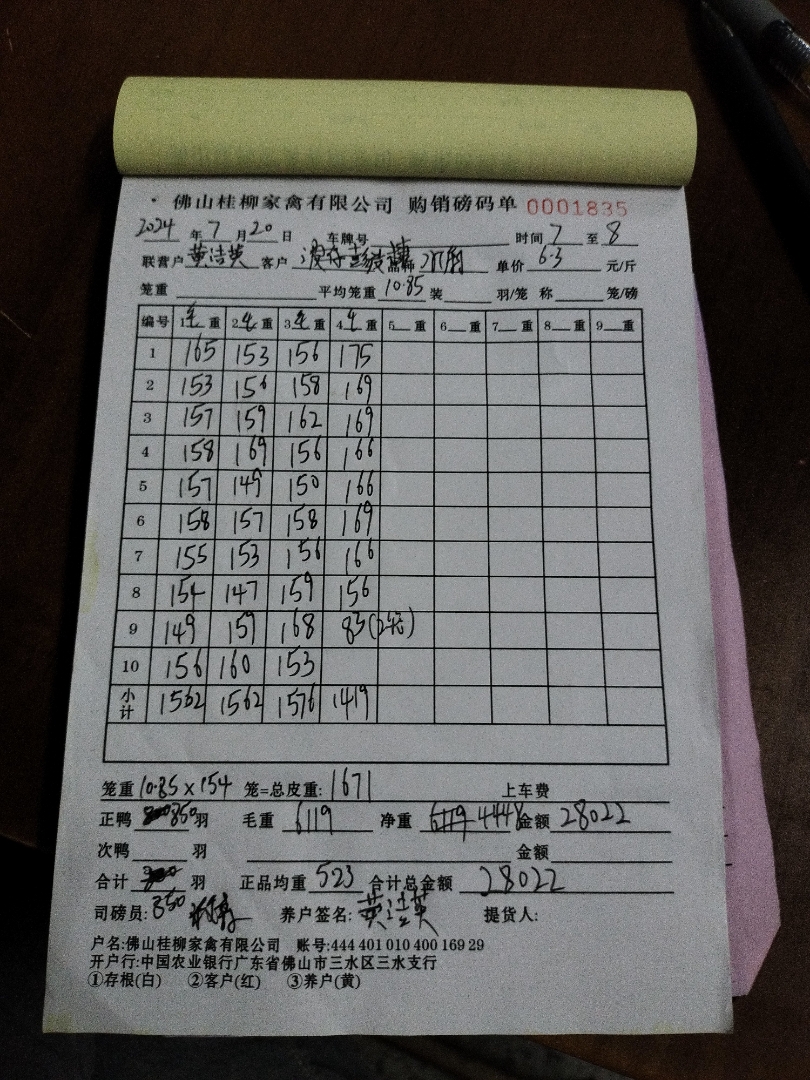 佛山桂柳家禽有限公司 购销磅码单 0001835
2024年7月20日 车牌号 时间7至8
联营户 黄洁英 客户 单价6.3元/斤
笼重 平均笼重10.85装 羽/笼 称 笼/磅
编号 1毛重 2毛重 3毛重 4毛重 5 重 6 重 7 重 8 重 9 重
1 165 153 156 175
2 153 156 158 169
3 157 159 162 169
4 158 169 156 166
5 157 149 150 166
6 158 157 158 169
7 155 153 156 166
8 154 147 159 156
9 149 159 168 83
10 156 160 153
小计 1562 1562 1576 1419
笼重10.85×154 笼=总皮重:1671 上车费
正鸭 850羽 毛重 6119 净重 6119 4448 金额 28022
次鸭 羽 金额
合计 羽 正品均重 523 合计总金额 28022
司磅员:850 养户签名:黄洁英 提货人:
户名:佛山桂柳家禽有限公司 账号:444 401 010 400 169 29
开户行:中国农业银行广东省佛山市三水区三水支行
①存根(白) ②客户(红) ③养户(黄)